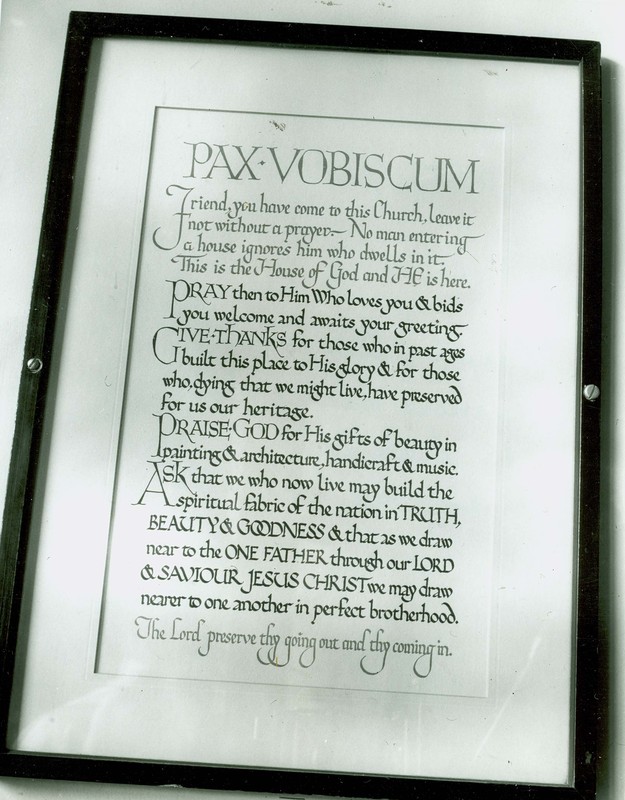 PAX·VOBISCUM
Friend, you have come to this Church, leave it
not without a prayer.— No man entering
a house ignores him who dwells in it.
This is the House of God and HE is here.
PRAY then to Him Who loves you & bids
you welcome and awaits your greeting.
GIVE·THANKS for those who in past ages
built this place to His glory & for those
who, dying that we might live, have preserved
for us our heritage.
PRAISE·GOD for His gifts of beauty in
painting & architecture, handicraft & music.
ASK that we who now live may build the
spiritual fabric of the nation in TRUTH,
BEAUTY & GOODNESS & that as we draw
near to the ONE FATHER through our LORD
& SAVIOUR JESUS CHRIST we may draw
nearer to one another in perfect brotherhood.
The Lord preserve thy going out and thy coming in.